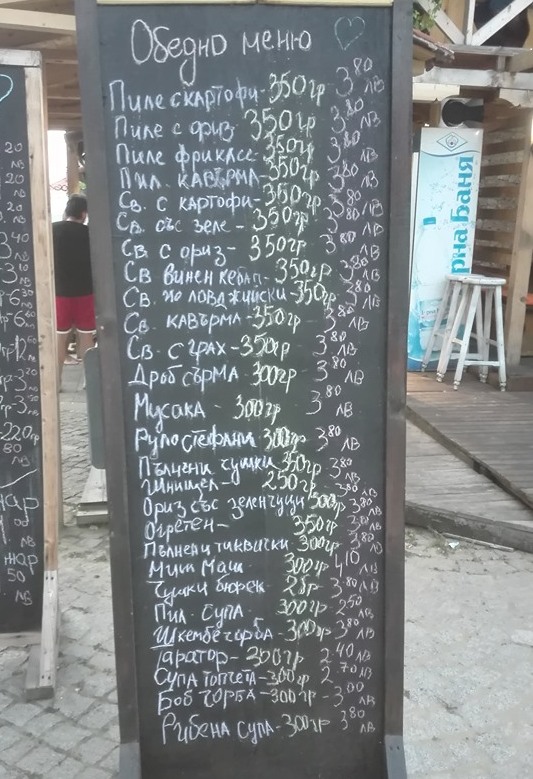 Обедно меню
Пиле с картофи - 350гр 3 80 лв
Пиле с ориз 350гр 3 80 лв
Пиле фрикасе - 350гр 3 80 лв
Пил. кавърма - 350гр 3 80 лв
Св. с картофи - 350гр 3 80 лв
Св. със зеле - 350гр 3 80 лв
Св. с ориз - 350гр 3 80 лв
Св винен кебап - 350гр 3 80 лв
Св. по ловджийски - 350гр 3 80 лв
Св. кавърма - 350гр 3 80 лв
Св. с грах - 350гр 3 80 лв
Дроб сърма 300гр 3 80 лв
Мусака - 300гр 3 80 лв
Руло Стефани 300гр 3 80 лв
Пълнени чушки 350гр 3 80 лв
Шницел - 250гр 3 80 лв
Ориз със зеленчуци 300гр 3 80 лв
Огретен - 350гр 3 80 лв
Пълнени тиквички 300гр 3 80 лв
Миш Маш - 300гр 4 10 лв
Чушки бюрек 2бр 3 80 лв
Пил. супа - 300гр 2 50 лв
Шкембе чорба - 300гр 3 80 лв
Таратор - 350гр 2 40 лв
Супа топчета - 300гр 2 70 лв
Боб чорба - 300гр - 3 00 лв
Рибена супа - 300гр 3 80 лв
рна баня